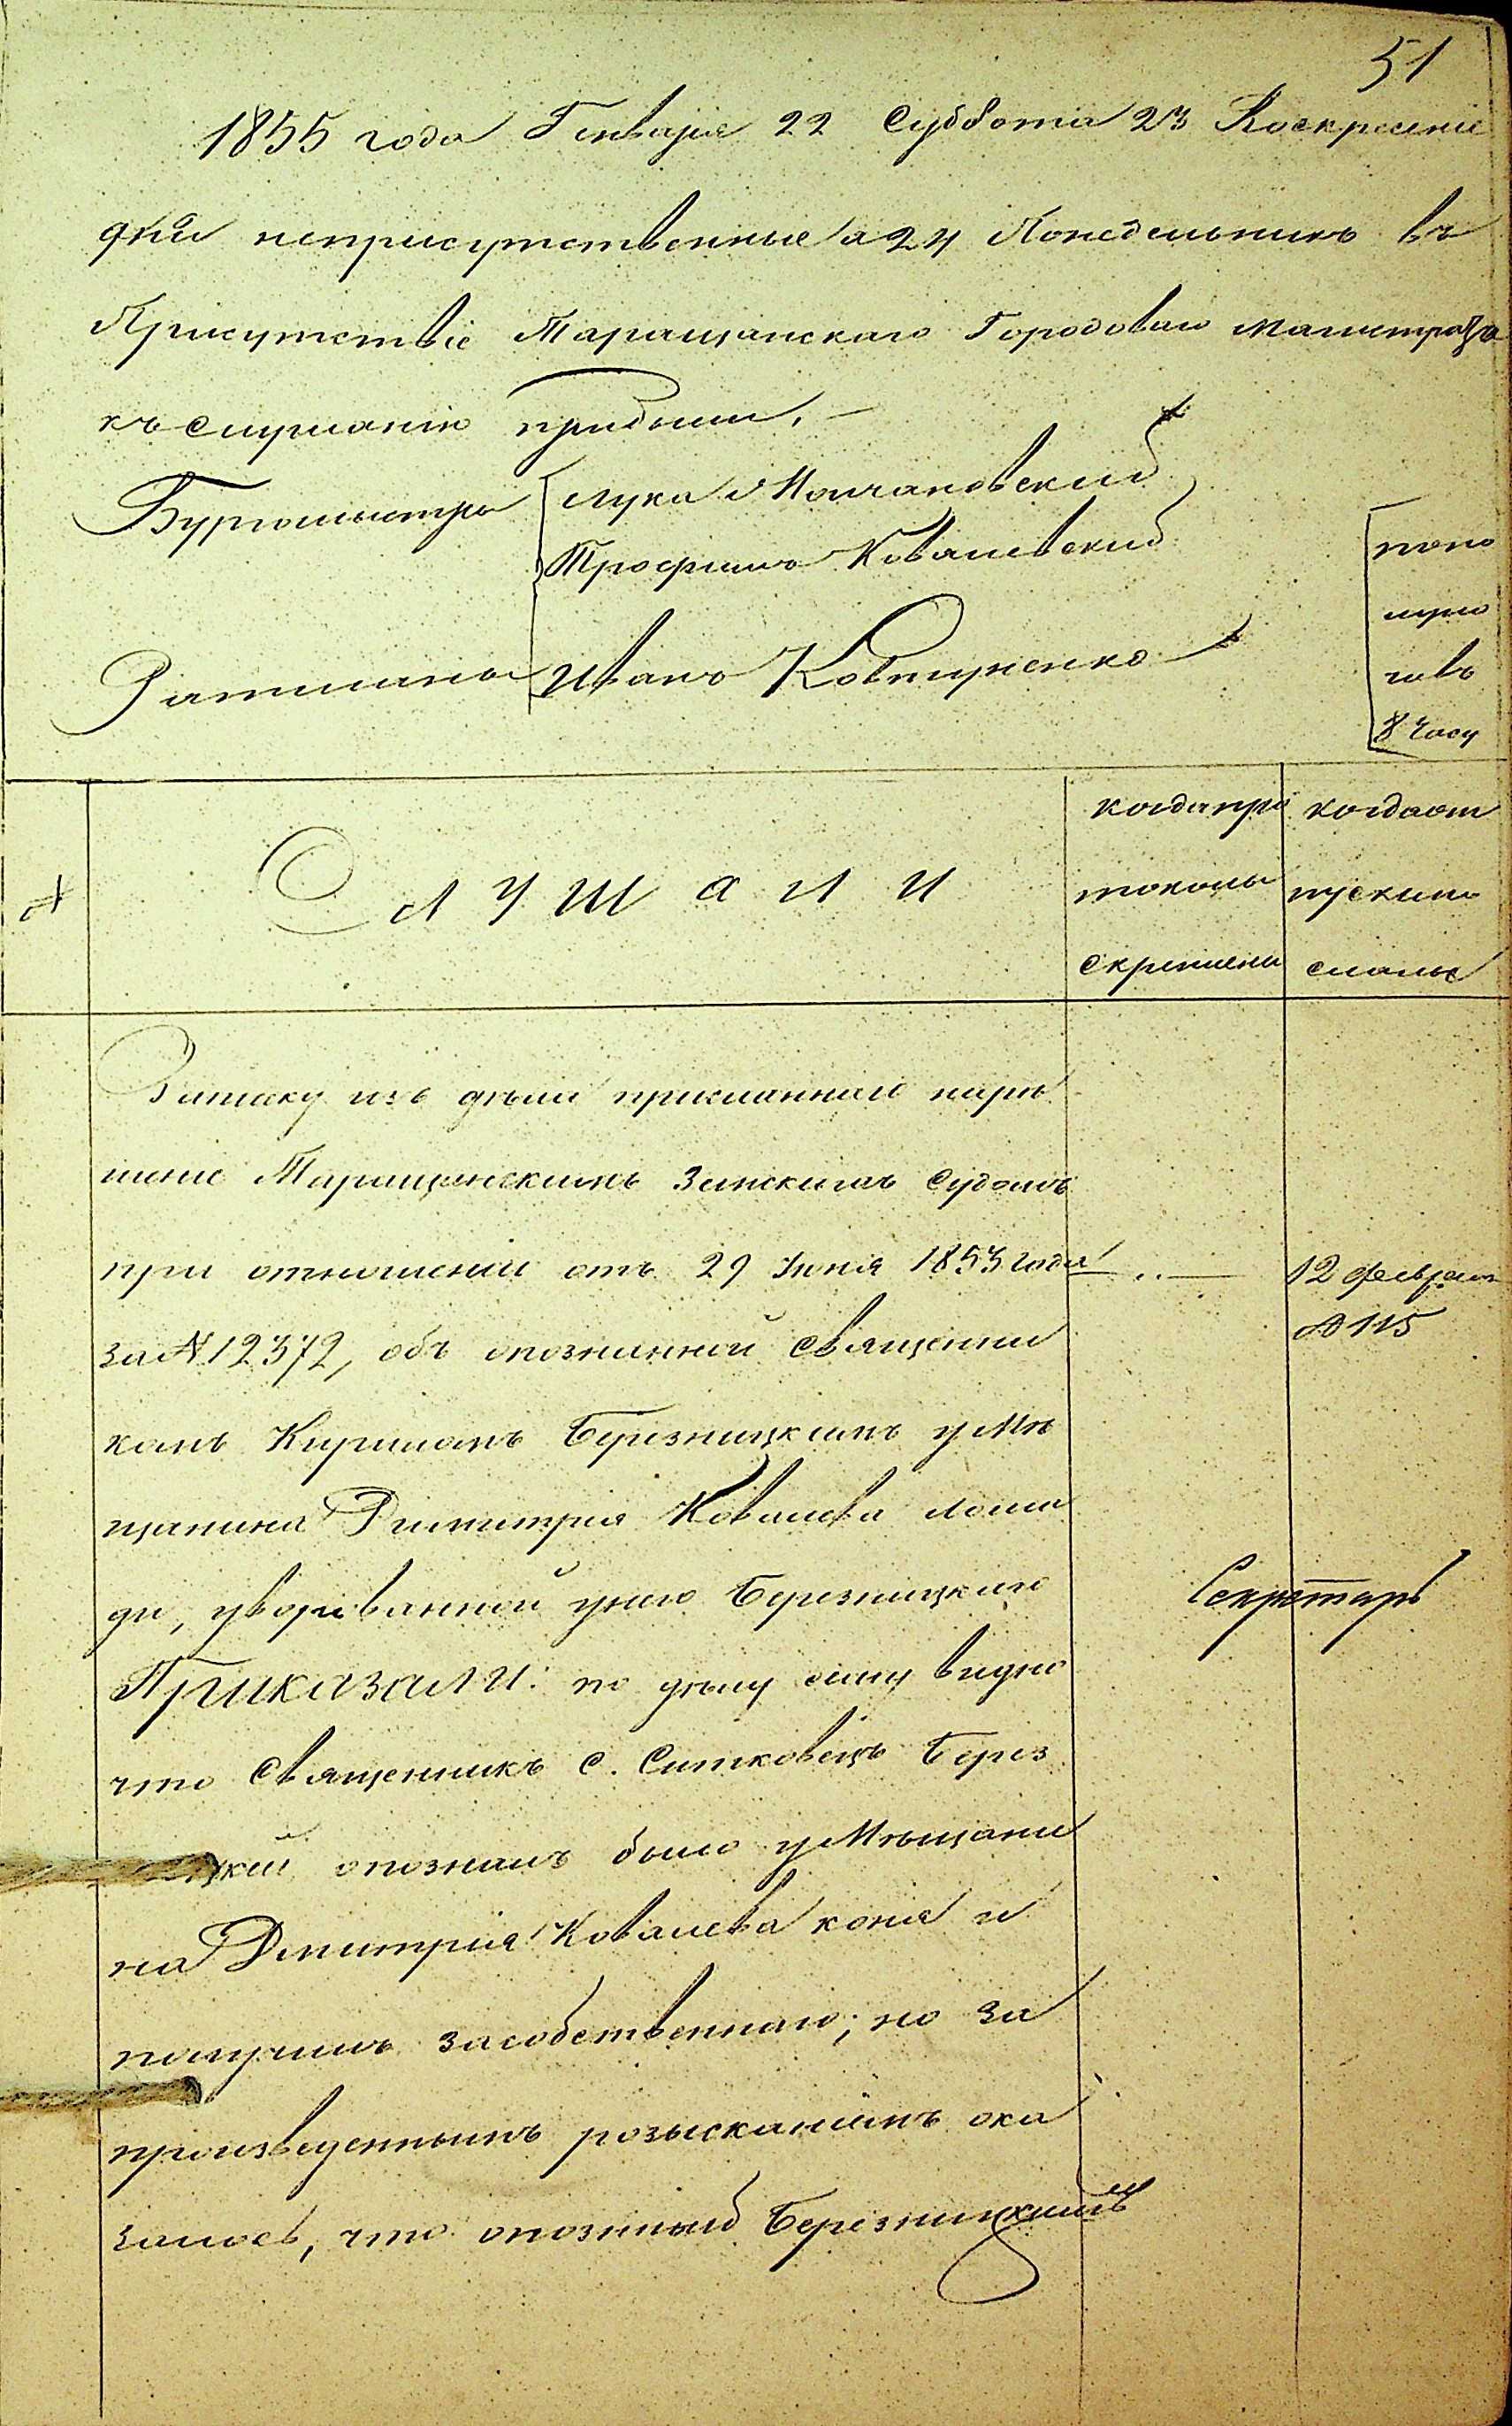 51
1855 года Генваря 22 Суббота 23 Воскресеніе
дни неприсутственные а 24 Понедельникъ въ
Присутствіе Таращанскаго Городоваго Магистрата
къ слушанію прибыли.
Бургомистры Лука Молчановский
Трофимъ Ковалевский
Ратманъ Иванъ Ковтуненко
попо
луно
чѣ
въ
8 часу
№ Слушали
когда про
токолы
скреплены
когда от
пуск
сланы
Записку изъ дѣла присланнаго
Таращанскимъ Земскимъ Судомъ
при отношеніи отъ 29 Іюня 1853 года
12 февраля
за № 12372, объ опознанной священни
№ 115
комъ Кириломъ Березницкимъ у Мѣ
щанина Димитрія Ковалева лоша
ди, уворованной у него Березницкаго
Секретарь
Приказали: по дѣлу сему видно
что Священникъ с. Ситковецъ Берез
цкій опозналъ было у Мѣщани
на Дмитрія Ковалева коня и
получилъ за собственнаго; но за
произведеннымъ розысканіемъ ока
залось, что опозный Березницкимъ